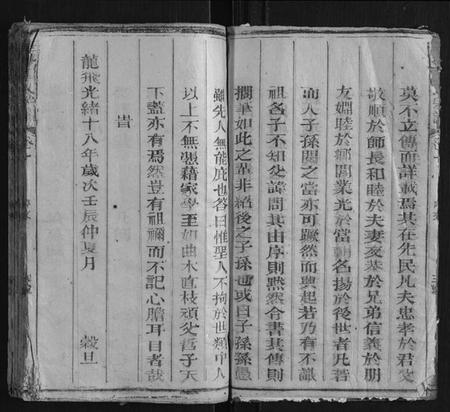 莫不立傳而詳載焉其在先民凡夫忠孝於君父
敬順於師長和睦於夫妻友恭於兄弟信義於朋
友婣睦於鄉閭業光於當朝名揚於後世者凡若
而人子孫聞之當亦可蹶然而興起若乃有不識
祖名子不知父諱問其由序則黙然令書其傳則
擱筆如此之輩非絕後之子孫也或曰子孫孫愚
雖先人無能庇也答曰惟聖人不拘於世類中人
以上不無憑藉家學至如曲木直枝頑父哲子天
下蓋亦有焉然豈有祖禰而不記心聽耳目者哉
旹
龍飛光緒十八年歲次壬辰仲夏月 穀旦